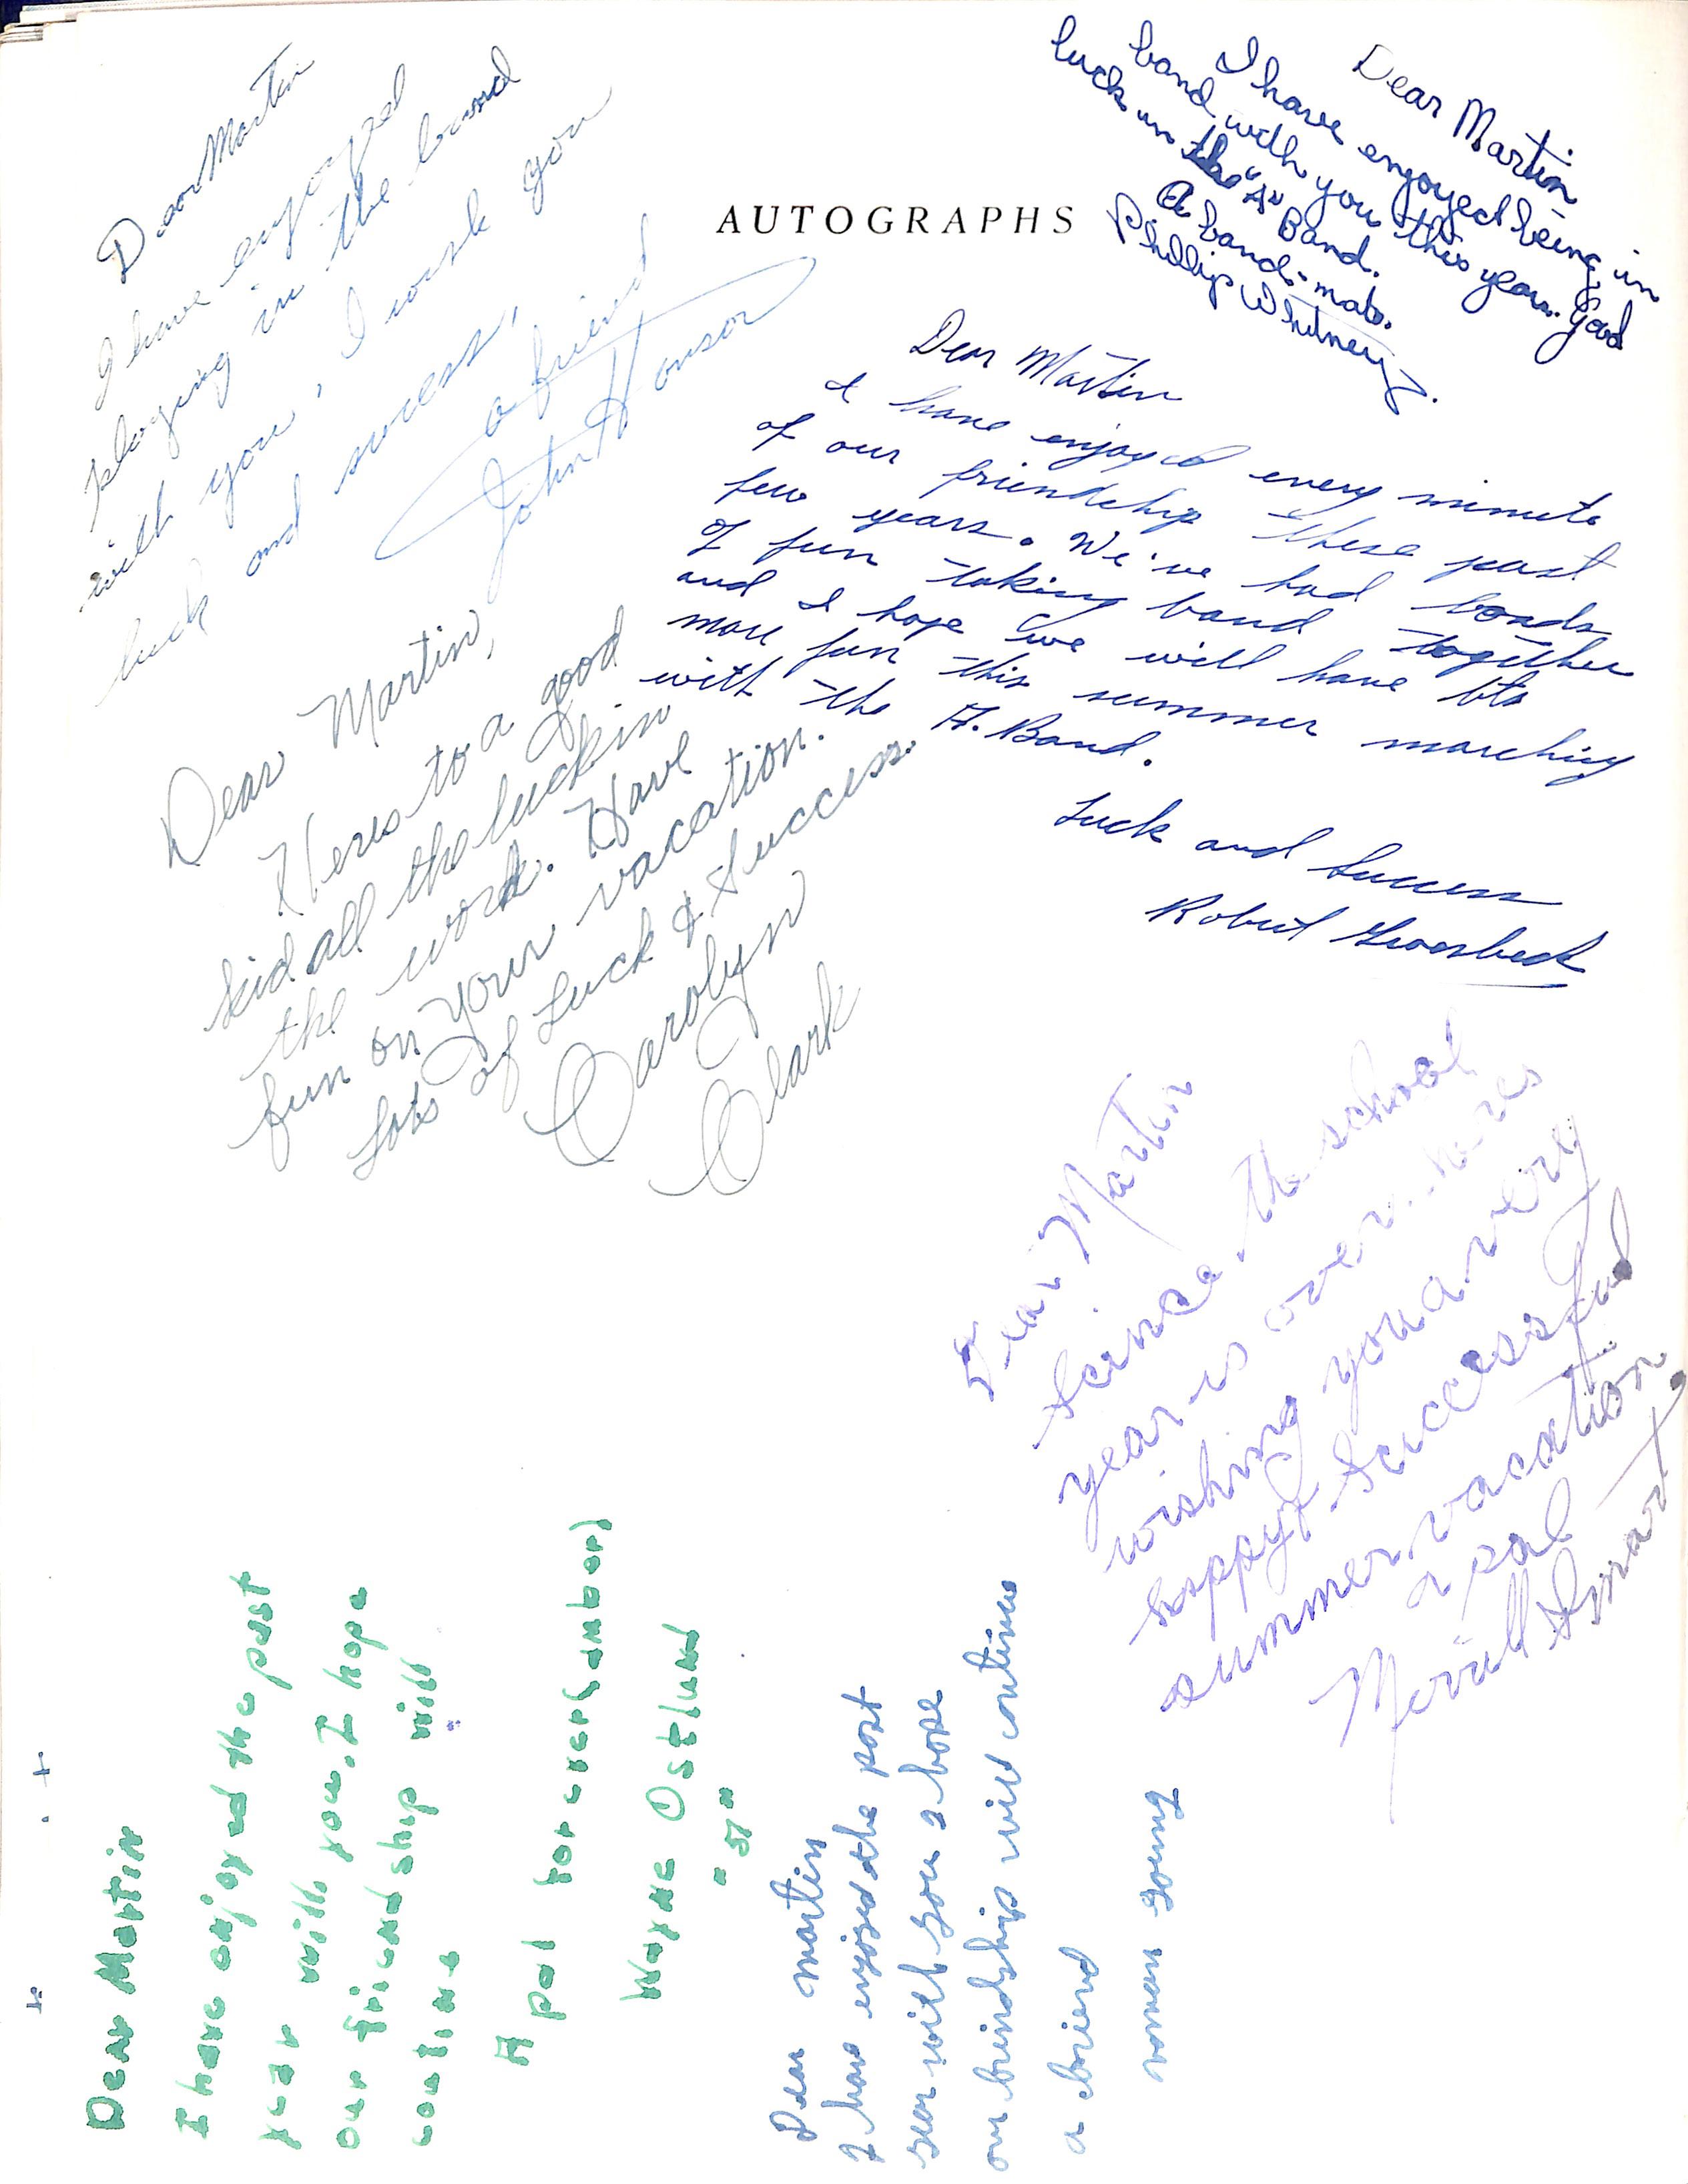 AUTOGRAPHS
Dear Martin
I have enjoyed
playing in the band
with you, I wish you
luck and sucess,
a friend
John Hanson
Dear Martin
I have enjoyed being in
band with you this year. Good
luck in the "A" Band.
A band-mate.
Phillip Whitney.
Dear Martin
I have enjoyed every minute
of our friendship these past
few years. We've had loads
of fun taking band together
and I hope we will have lots
more fun this summer marching
with the A. Band.
Luck and Success
Robert Groesbeck
Dear Martin,
Heres to a good
kid all the luck in
the work. Have
fun on your vacation.
Lots of Luck & Success.
Carolyn
Clark
Dear Martin
Scince the school
year is over. heres
wishing you a very
happy & Successful
summer vacation
a pal
Merrill Smart.
Dear Martin
I have enjoyed the past
year with you. I hope
our friendship will
contine
A pal forever (amber)
Wayne Ostlund
"57"
Dear martin
I have enjosed the past
year with you I hope
our friendship will continue
a friend
roman young